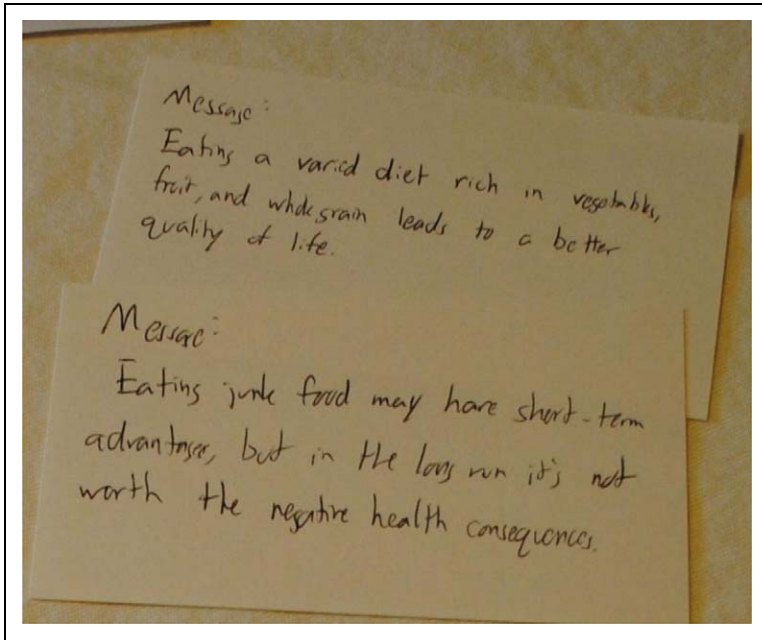 Message:
Eating a varied diet rich in vegetables,
fruit, and wholegrain leads to a better
quality of life.
Message:
Eating junk food may have short-term
advantages, but in the long run it's not
worth the negative health consequences.